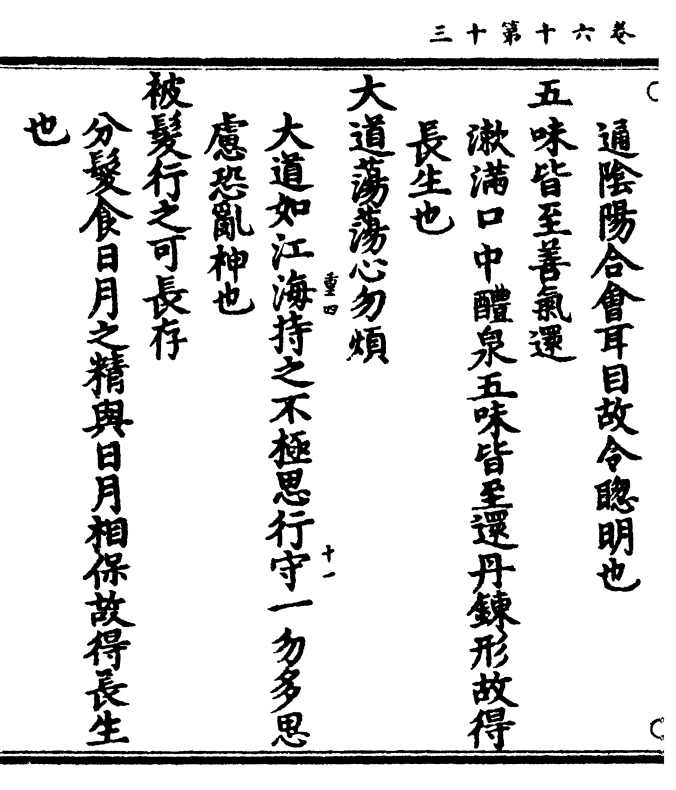 卷六十第十三
通陰陽合會耳目故令聰明也
五味皆至善氣還
漱滿口中醴泉五味皆至還丹鍊形故得
長生也
大道蕩蕩心勿煩
大道如江海持之不極思行守一勿多思
重四
十一
慮恐亂神也
被髮行之可長存
分髮食日月之精與日月相保故得長生
也